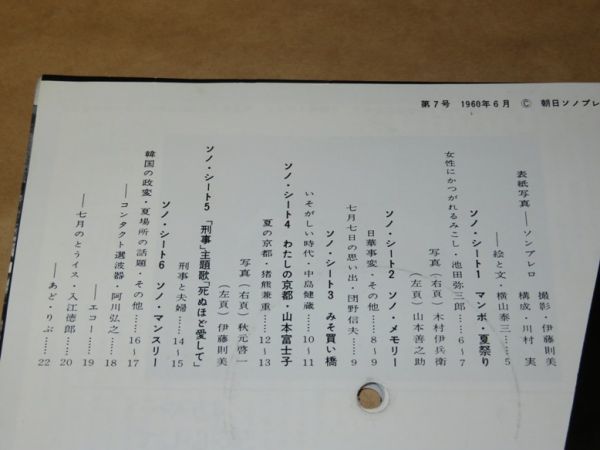 第7号 1960年6月 © 朝日ソノプレ
表紙写真――ソンブレロ 撮影・伊藤則美
構成・川村 実
ソノ・シート1 マンボ・夏祭り
――絵と文・横山泰三……5
女性にかつがれるみこし・池田弥三郎……6〜7
写真(右頁)木村伊兵衛
(左頁)山本善之助
ソノ・シート2 ソノ・メモリー
日華事変・その他……8〜9
七月七日の思い出・団野信夫……9
ソノ・シート3 みそ買い橋
いそがしい時代・中島健蔵……10〜11
ソノ・シート4 わたしの京都・山本富士子
夏の京都・猪熊兼重……12〜13
写真(右頁)秋元啓一
(左頁)伊藤則美
ソノ・シート5 「刑事」主題歌「死ぬほど愛して」
刑事と夫婦……14〜15
ソノ・シート6 ソノ・マンスリー
韓国の政変・夏場所の話題・その他……16〜17
――コンタクト選波器・阿川弘之……18
――エコー……19
――七月のとうイス・入江徳郎……20
――あど・りぶ……22